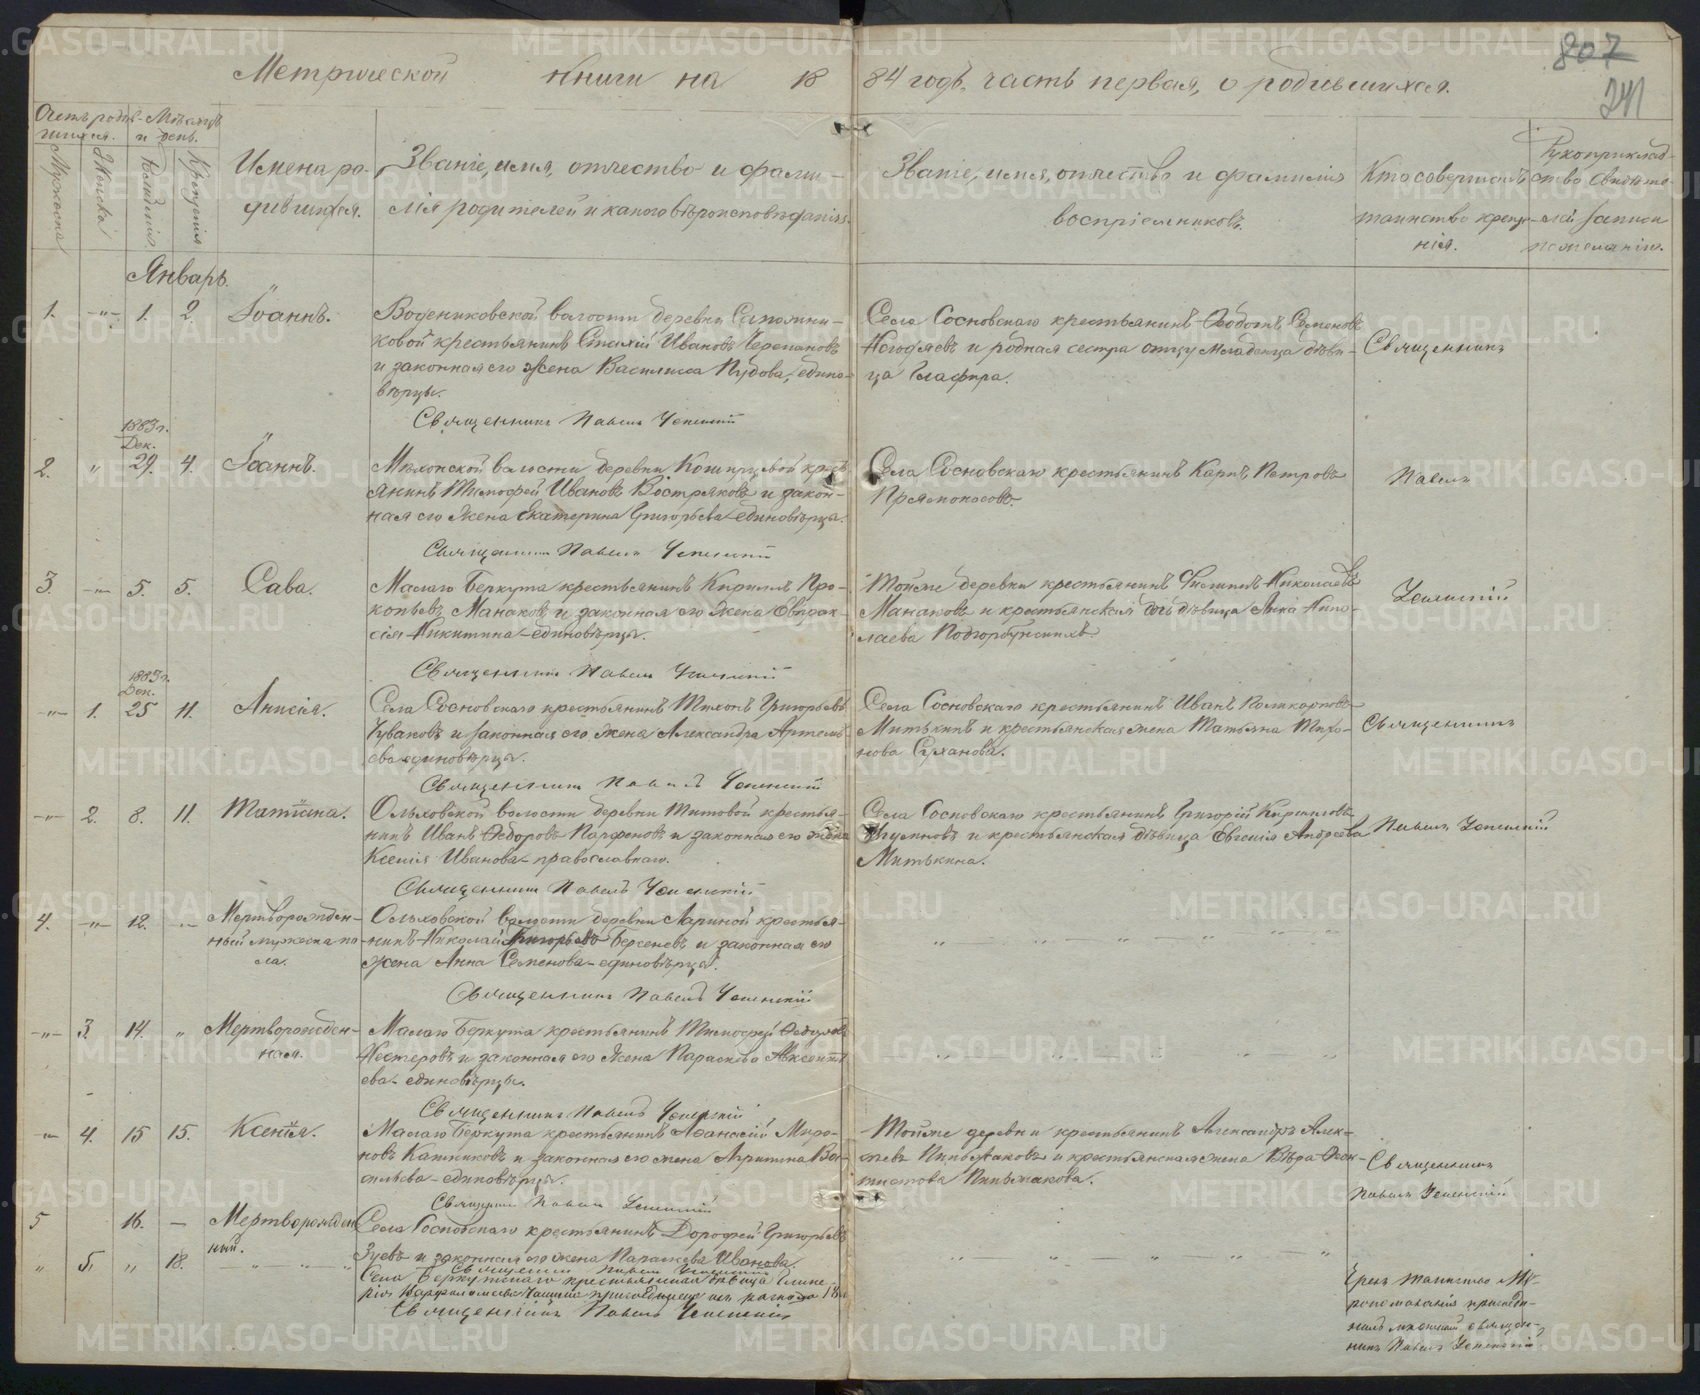 807
241
Метрической книги на 1884 годъ, часть первая, о родившихся.
Счетъ родив-шихся.
Мужеска
Женска
Мѣсяцъ и день.
Рожденія
Крещенія
Имена родившихся.
Званіе, имя, отчество и фамилія родителей и какого вѣроисповѣданія.
Званіе, имя, отчество и фамилія воспріемниковъ.
Кто совершалъ таинство крещенія.
Рукоприкладство свидѣтелей записи по желанію.
Январь.
1. -"- 1. 2. Іоаннъ.
Воденниковской волости деревни
ковой крестьянинъ Ивановъ Черепановъ
и законная его жена Василиса Пудова, едино-
вѣрцы.
Священникъ Павелъ Успенскій
Села Сосновскаго крестьянинъ Ѳедотъ Семеновъ
и родная сестра отцу младенца дѣви-
ца Глафира.
Священникъ
1883 г.
Дек.
2. " 29. 4. Іоаннъ.
Мехонской волости деревни крестья-
янинъ Тимофей Ивановъ Востряковъ и закон-
ная его жена Екатерина Григорьева единовѣрцы.
Священникъ Павелъ Успенскій
Села Сосновскаго крестьянинъ Карпъ Петровъ
Прямоносовъ.
Павелъ
3. -"- 5. 5. Сава.
Малаго Беркута крестьянинъ Кириллъ Про-
копьевъ Манаковъ и законная его жена Евдок-
сія Никитина единовѣрцы.
Священникъ Павелъ Успенскій
Тойже деревни крестьянинъ Филиппъ Николаевъ
Манаковъ и крестьянская дѣвица Анна Нико-
лаева Подгорбунскихъ.
Успенскій
1883 г.
Дек.
-"- 1. 25 11. Анисія.
Села Сосновскаго крестьянинъ Тихонъ Григорьевъ
Чуваковъ и законная его жена Александра Артемь-
ева единовѣрцы.
Священникъ Павелъ Успенскій
Села Сосновскаго крестьянинъ Иванъ Поликарповъ
Митькинъ и крестьянская жена Татьяна Тихо-
нова
Священникъ
-"- 2. 8. 11. Татіана.
Ольховской волости деревни Титовой крестья-
нинъ Иванъ Ѳедоровъ Парфеновъ и законная его жена
Ксенія Иванова - православнаго.
Священникъ Павелъ Успенскій
Села Сосновскаго крестьянинъ Григорій Кирилловъ
и крестьянская дѣвица Евгенія Андреева
Митькина.
Павелъ Успенскій
4. -"- 12. -"- Мертворожден-
ный мужеска по-
ла.
Ольховской волости деревни Лариной крестья-
нинъ Николай Григорьевъ Берсеневъ и законная его
жена Анна Семенова - единовѣрцы.
Священникъ Павелъ Успенскій
-"- 3. 14. " Мертворожден-
ная.
Малаго Беркута крестьянинъ Тимофей Ѳедуловъ
Нестеровъ и законная его жена Параскева Авксенть-
ева - единовѣрцы.
Священникъ Павелъ Успенскій
-"- 4. 15 15. Ксенія.
Малаго Беркута крестьянинъ Аѳанасій Миро-
новъ и законная его жена Агрипина Ва-
сильева - единовѣрцы.
Священникъ Павелъ Успенскій
Тойже деревни крестьянинъ Александръ Алек-
сѣевъ и крестьянская жена Вѣра
Священникъ
Павелъ Успенскій
5 16. — Мертворожден
ный.
Села Сосновскаго крестьянинъ Дорофей Григорьевъ
Зуевъ и законная его жена Параскева Иванова.
Священникъ Павелъ Успенскій
" 5. " 18.
Села Беркутскаго крестьянская дѣвица Глике-
рія присоединена изъ раскола 18
Священникъ Павелъ Успенскій
Чрезъ таинство Мѵ-
ропомазанія присоеди-
нилъ священ-
никъ Павелъ Успенскій